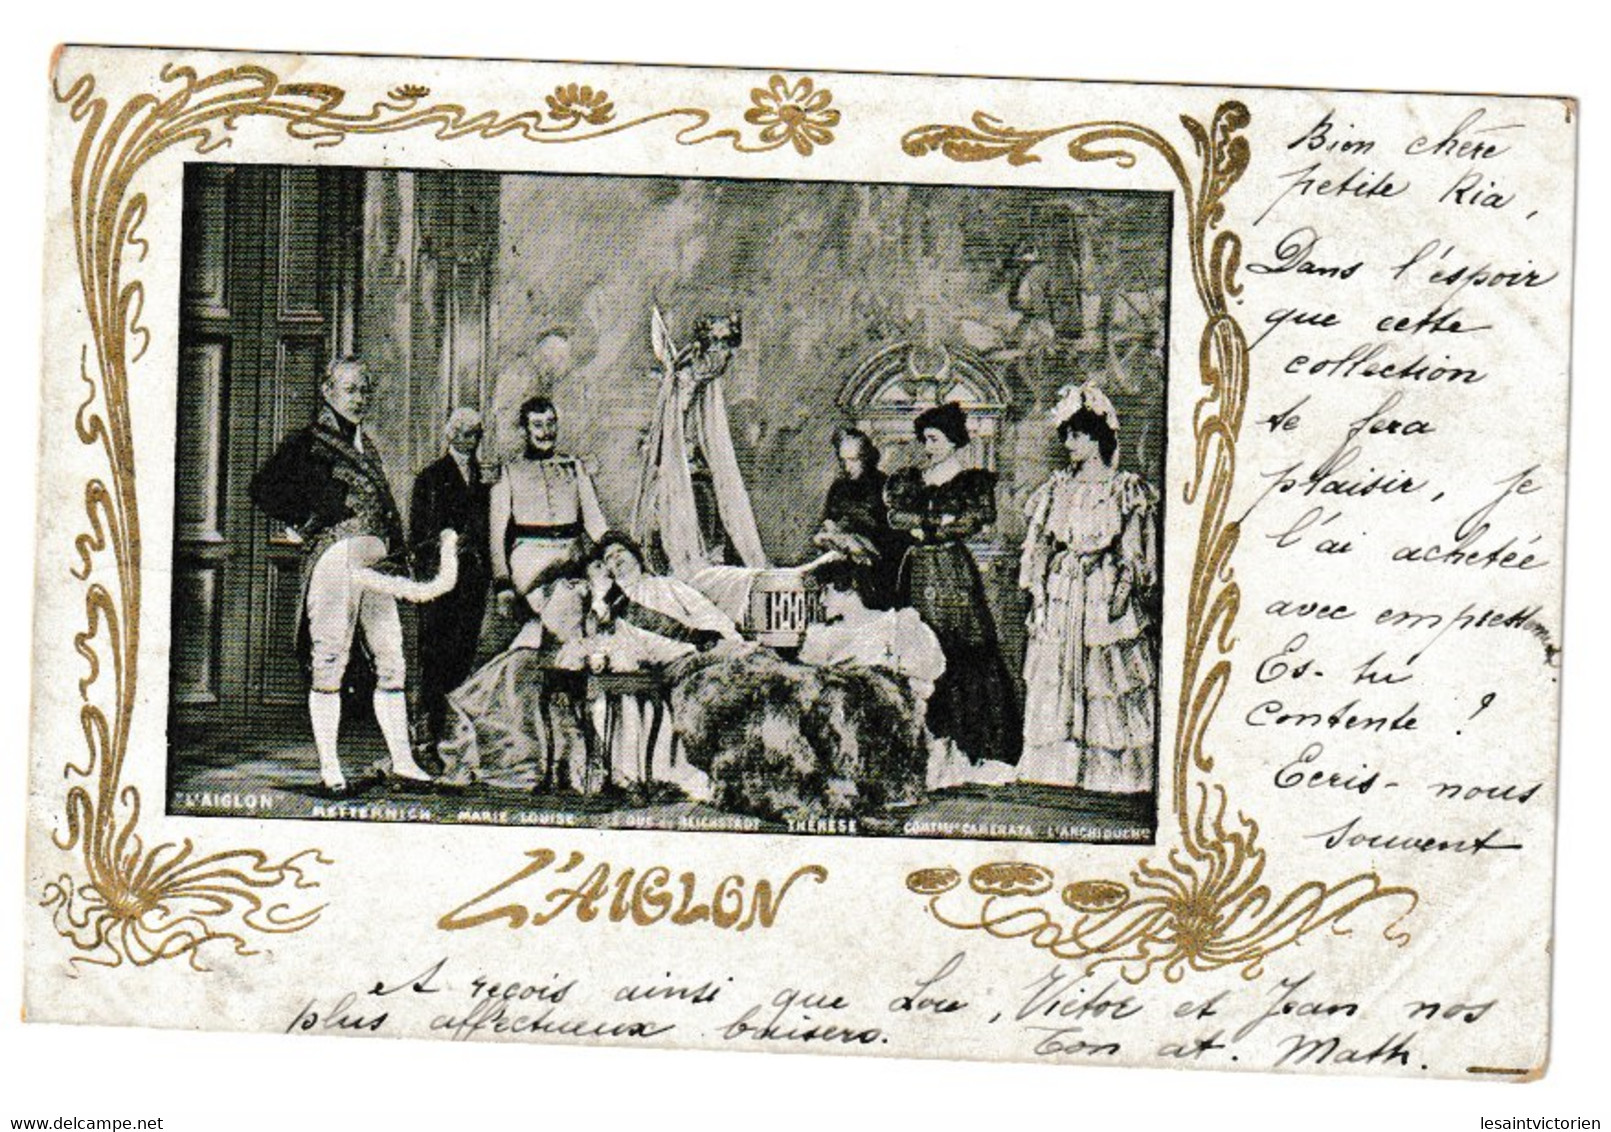 Bien chère
petite Ria,
Dans l'espoir
que cette
collection
te fera
plaisir, je
l'ai achetée
avec empressement.
Es-tu
contente ?
Ecris-nous
souvent
"L'AIGLON" METTERNICH MARIE LOUISE LE DUC DE REICHSTADT THÉRÈSE COMTSSE CAMERATA L'ARCHIDUCHSSE
L'AIGLON
et reçois ainsi que Lou, Victor et Jean nos
plus affectueux baisers. Ton at. Math.
delcampe.net
lesaintvictorien